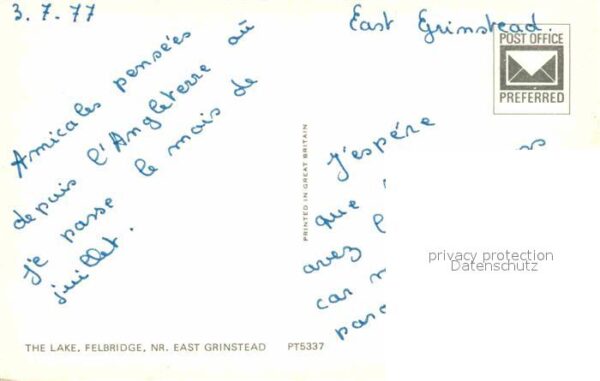 3.7.77
East Grinstead.
POST OFFICE
PREFERRED
Amicales pensées
depuis l'Angleterre où
je passe le mois de
juillet.
PRINTED IN GREAT BRITAIN
J'espére
que
avez
car
privacy protection
Datenschutz
THE LAKE, FELBRIDGE, NR. EAST GRINSTEAD PT5337